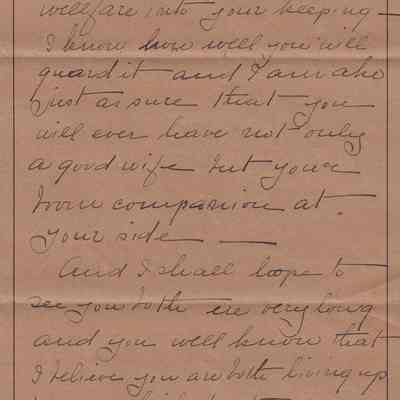 welfare into your keeping —
I know how well you will
guard it — and I am also
just as sure that you
will ever have not only
a good wife but your
boon companion at
your side —
And I shall hope to
see you both ere very long
and you well know that
I believe you are both living up